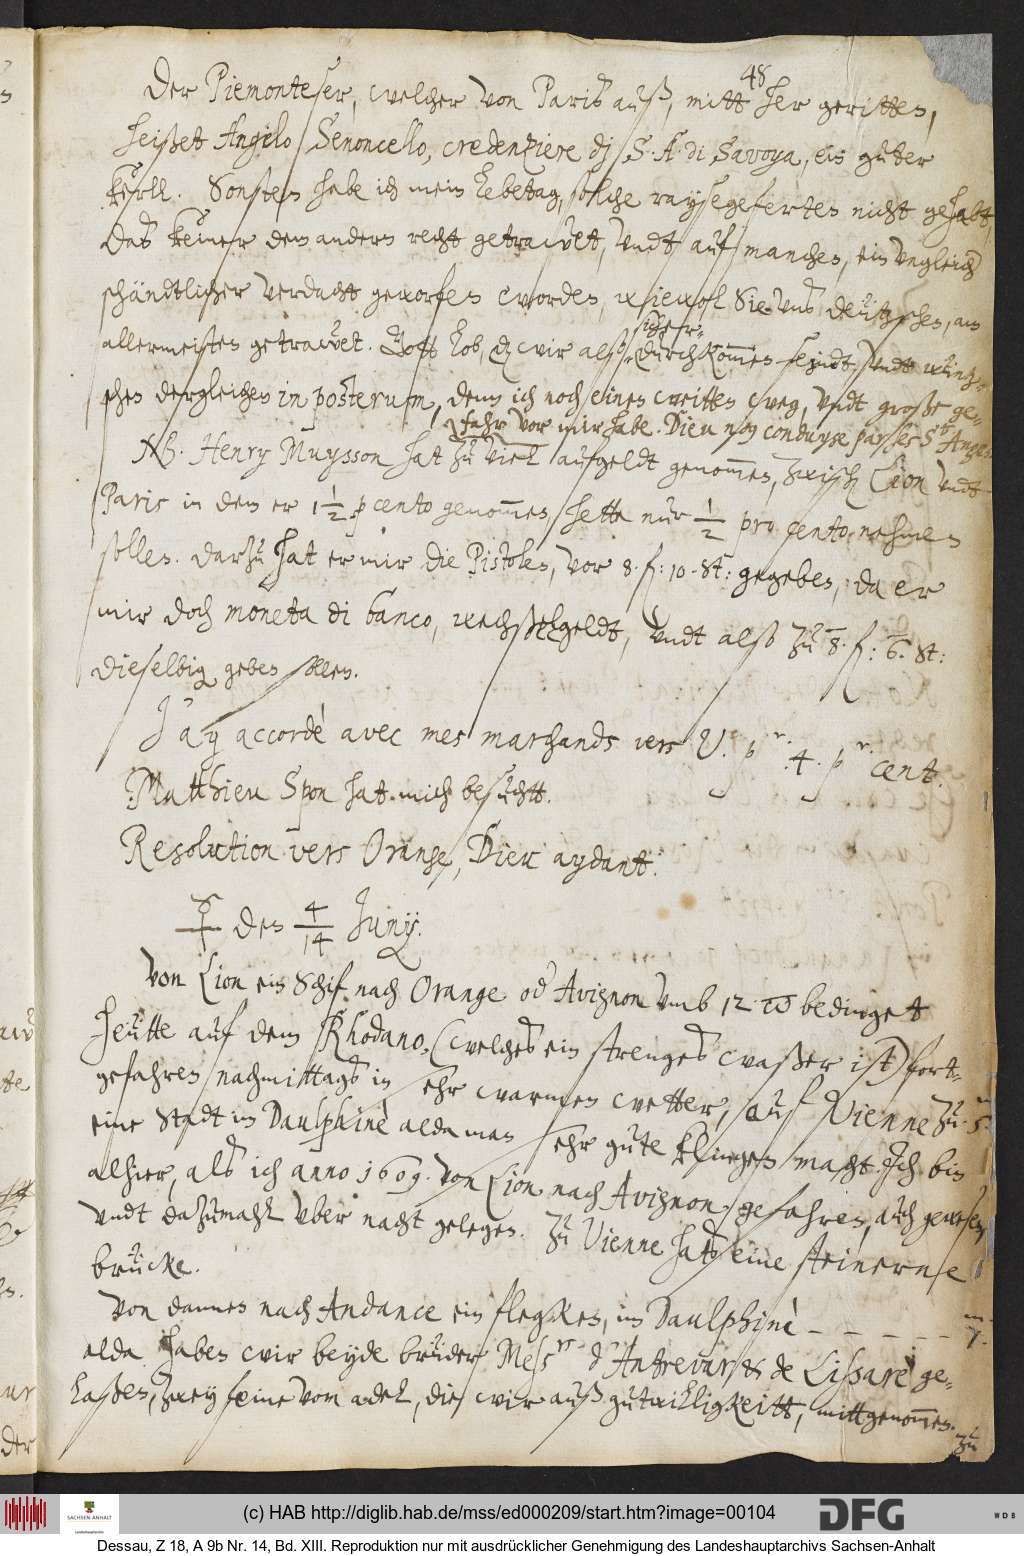 48
Der Piemonteser, welcher von Paris auß, mitt her geritten,
heißet Angelo Senoncello, credenziere dj S. A. di Savoya, ein guter
kerll. Sonsten habe ich mein lebetag, solche raysegeferten nicht gehabt,
das keiner dem andern recht getrawet, vndt auf manchen, ein vngleich
schändtlicher verdacht geworfen worden, wiewol Sie vns deützschen, am
allermeisten getrawet. Gott lob, dz wir also sicher
durchkommen seindt, vndt wüntz-
schen dergleichen in posterum, denn ich noch einen weitten weg, vndt große ge-
fahr vor mir habe. Dieu nous conduyse par ses Sts Anges
NB. Henry Muysson hat zu viel aufgeldt genommen, zwisch Lion vndt
Paris in dem er 1½ p cento genommen, hette nur ½ pro cento nehmen
sollen. darzu hat er mir die Pistolen, vor 8. f: 10. St: gegeben, da er
mir doch moneta di banco, wechßelgeldt, vndt also zu 8. f: 6. St:
dieselbig geben sollen.
J'ay accordè avec mes marchands vers V. pr. 4. pr. cent.
Matthieu Spon hat mich besucht.
Resolution vers Orange, Dieu aydant.
♀ den 4/14 Junij.
Von Lion ein Schif nach Orange od Avignon vmb 12 bedinget
heütte auf dem Rhodano, (welches ein strenges waßer ist) fort-
gefahren nachmittags in sehr warmen wetter, auf Vienne zu m 5.
eine Stadt in Daulphinè alda man sehr gute klingen macht. Jch bin
alhier, als ich anno 1609. von Lion nach Avignon gefahren, auch gewesen,
vndt dazumahl vber nacht gelegen. Zu Vienne hats eine steinerne
brücke.
Von dannen nach Andance ein flegken, in Daulphinè - - - - - m 7.
alda haben wir beyde brüder Messrs d'Antrevar de Lissare ge-
laßen, zwey feine von adel, die wir auß gutwilligkeitt, mittgenommen.
zu
(c) HAB http://diglib.hab.de/mss/ed000209/start.htm?image=00104
SACHSEN-ANHALT
Landeshauptarchiv
DFG
WDB
Dessau, Z 18, A 9b Nr. 14, Bd. XIII. Reproduktion nur mit ausdrücklicher Genehmigung des Landeshauptarchivs Sachsen-Anhalt